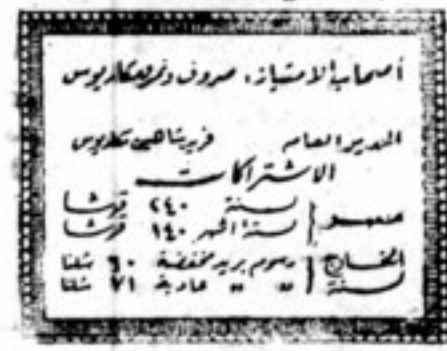 أصحاب الامتياز: صروف ونمر ومكاريوس
المدير العام فريد شاهين مكاريوس
الاشتراكات
مصر } لسنة ٢٤٠ قرشا
لستة اشهر ١٤٠ قرشا
الخارج لسنة } رسوم بريد مخفضة ٦٠ شلنا
" " عادية ٧١ شلنا